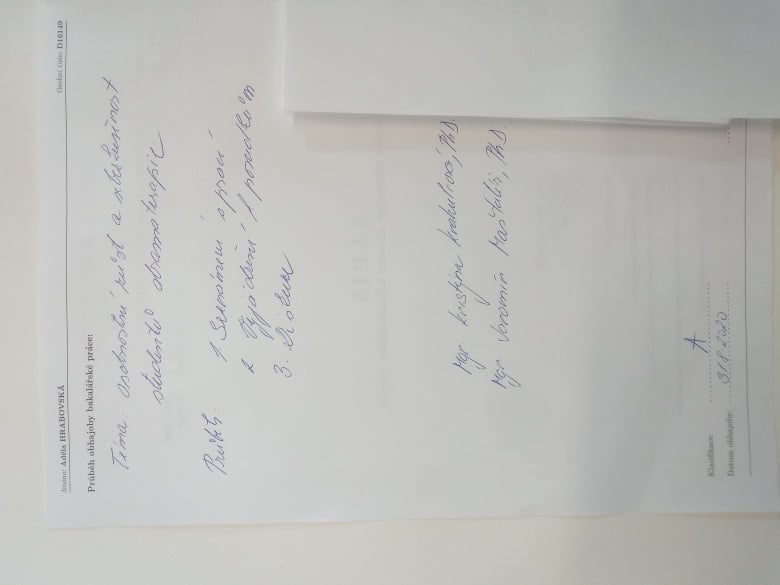 Jméno: Adéla HRABOVSKÁ Osobní číslo: D16149
Průběh obhajoby bakalářské práce:
Téma: Osobnostní růst a zkušenost
studentů dramaterapie
Průběh: 1. Seznámení s prací
2. Vyjádření k posudkům
3. Diskuse
Mgr. Kristýna Krahulcová, Ph.D.
Mgr. Jaromír Maštalíř, Ph.D.
Klasifikace: A
Datum obhajoby: 31.8.2020